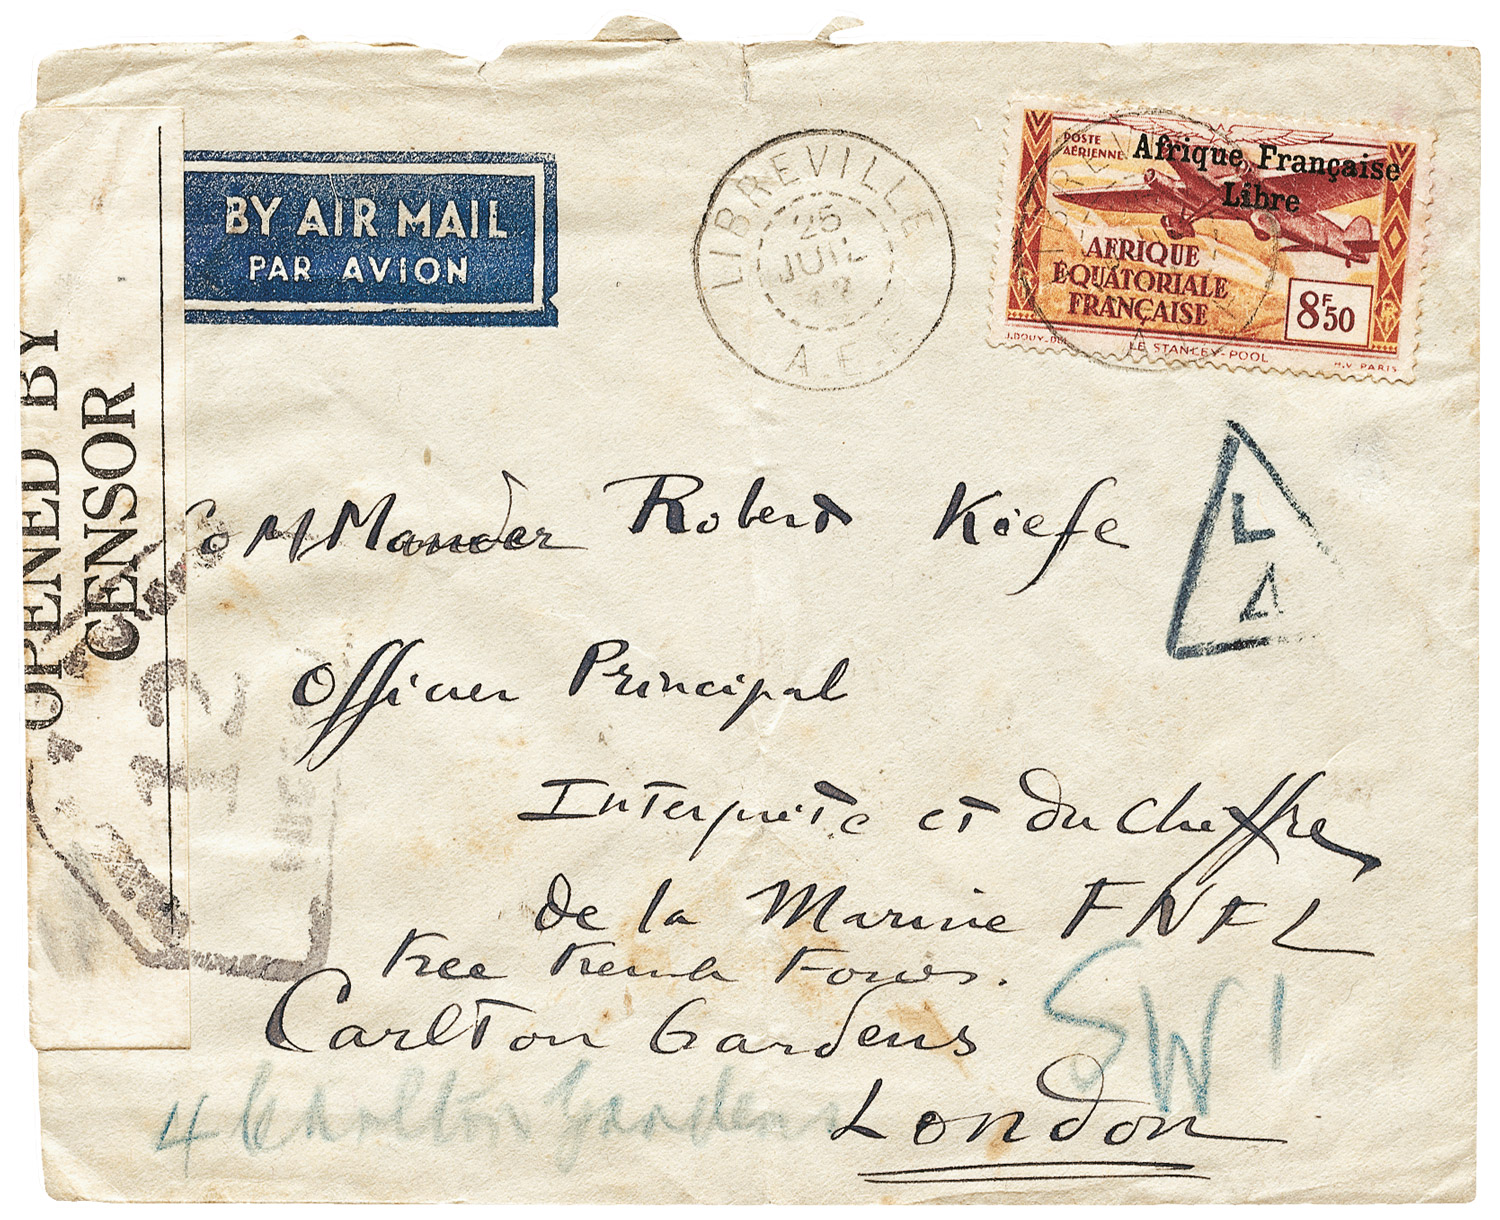 BY AIR MAIL
PAR AVION
OPENED BY
CENSOR
12
LIBREVILLE
25
JUIL
42
A.E.F
POSTE
AÉRIENNE
Afrique Française
Libre
AFRIQUE
ÉQUATORIALE
FRANÇAISE
8F50
LE STANLEY-POOL
H.V PARIS
L
A
CoMMander Robert Kiefe
Officier Principal
Interprète et du Cheffre
de la Marine FNFL
Free French Forces.
Carlton Gardens
SW1
London
4 Charlton Gardens